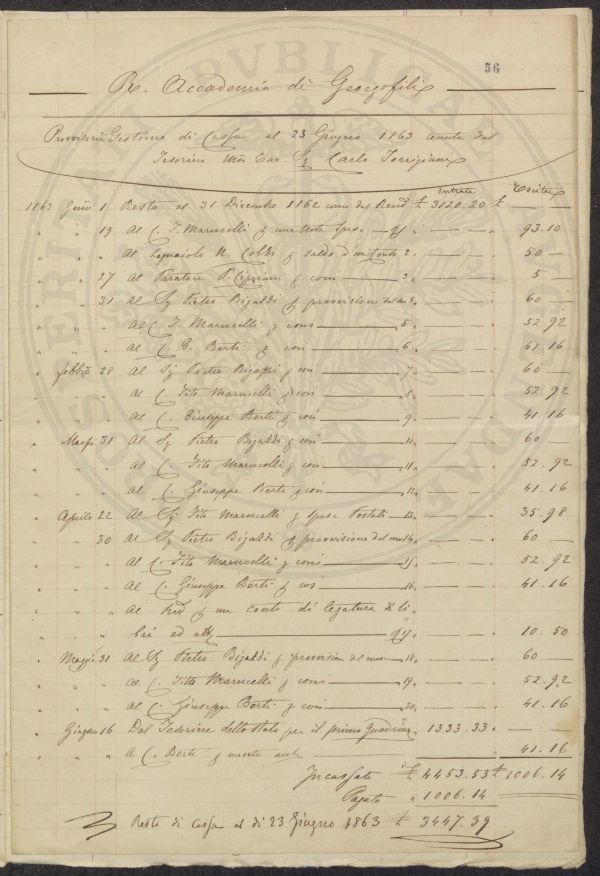 56
R. Accademia di Georgofili
Provvisoria Gestione di Cassa al 23 Giugno 1863 tenuta dal
Tesoriere Carlo Torrigiani
Entrata Uscita
1863 Genn 1 Resto al 31 Dicembre 1862 come dal Rend £ 3120.20 £
" " 19 Al C. T. Marucelli p una nota spese 1 93.10
" " " Al Legnaiolo N. p saldo d'un Conto 2 50 —
" " 27 Al Paratore P. Cipriani p 3 5 —
" " 31 Al Sig Pietro Bigazzi p provvisione del mese 4 60 —
" " " Al C. T. Marucelli p così 5 52.92
" " " Al C. G. Berti p così 6 41.16
" Febb 28 Al Sig Pietro Bigazzi p così 7 60 —
" " " Al C. Tito Marucelli p così 8 52.92
" " " Al C. Giuseppe Berti p così 9 41.16
" Marzo 31 Al Sig Pietro Bigazzi p così 10 60 —
" " " Al C. Tito Marucelli p così 11 52.92
" " " Al C. Giuseppe Berti p così 12 41.16
" Aprile 22 Al Sig Tito Marucelli p spese Postali 13 35.98
" " 30 Al Sig Pietro Bigazzi p provvisione del mese 14 60 —
" " " Al C. Tito Marucelli p così 15 52.92
" " " Al C. Giuseppe Berti p così 16 41.16
" " " Al p un conto di legatura di li
" " " bri ed altr 17 10.50
" Maggio 31 Al Sig Pietro Bigazzi p provvision del mese 18 60 —
" " " Al C. Tito Marucelli p così 19 52.92
" " " Al C. Giuseppe Berti p così 20 41.16
" Giugno 16 Dal Tesoriere dello Stato per il primo Quadrim 1333.33
" " " A C. Berti p 41.16
Incassato £ 4453.53 £ 1006.14
Pagato " 1006.14
Resto di cassa al dì 23 Giugno 1863 £ 3447.39